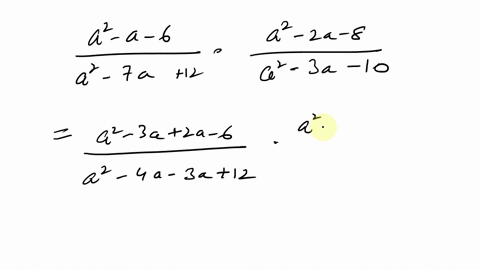 a² - a - 6 / a² - 7a + 12 · a² - 2a - 8 / a² - 3a - 10
= a² - 3a + 2a - 6 / a² - 4a - 3a + 12 · a²